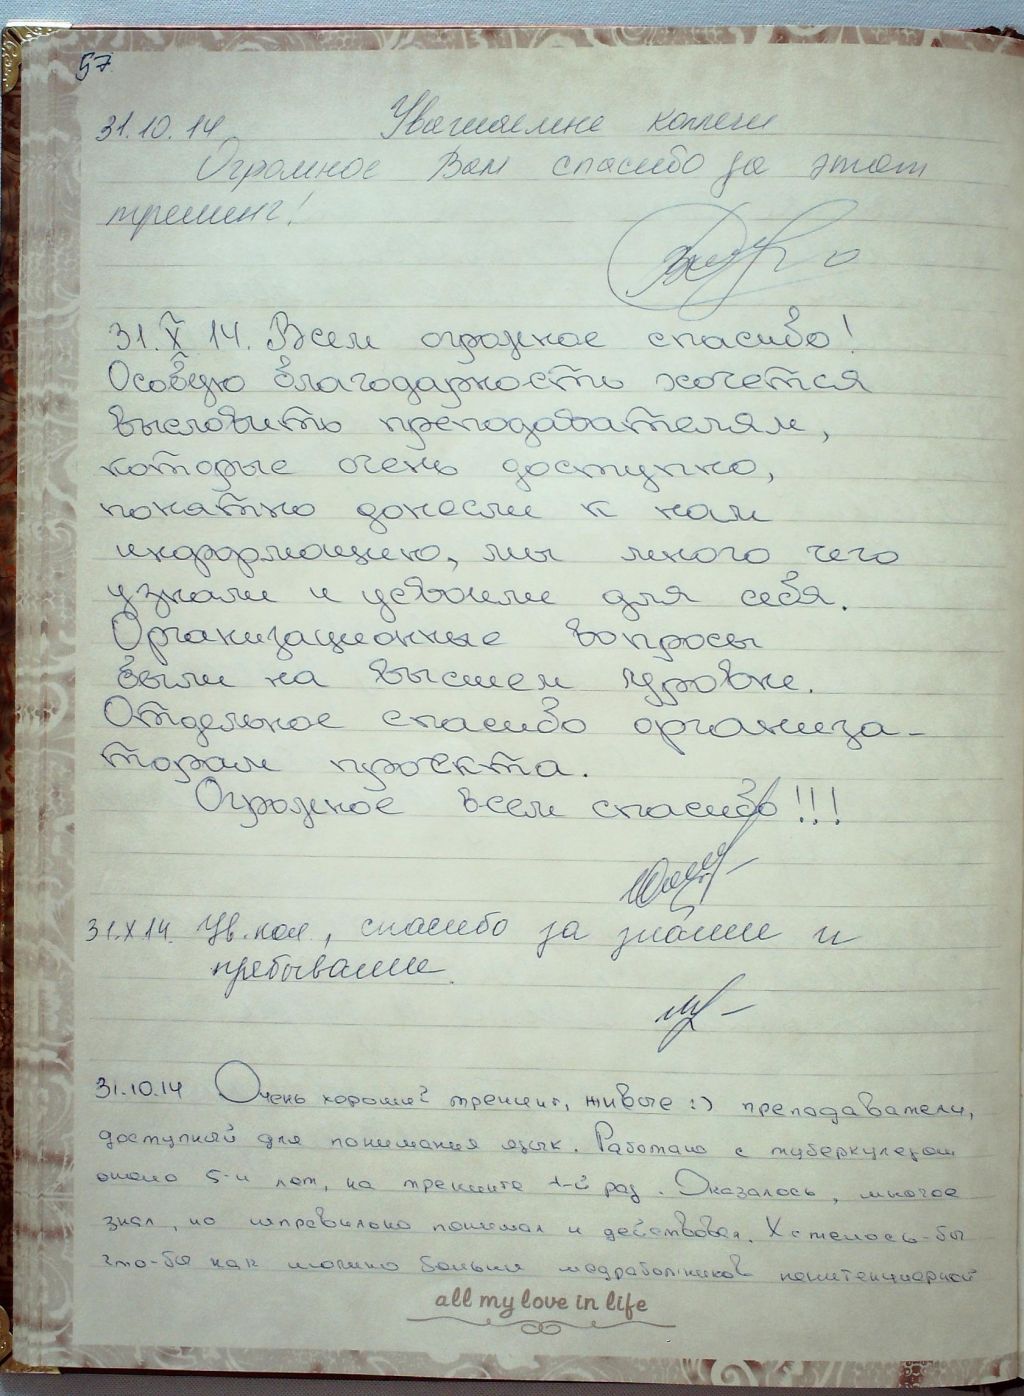 57
31.10.14 Уважаемые коллеги
Огромное Вам спасибо за этот
тренинг!
31.X 14. Всем огромное спасибо!
Особую благодарность хочется
высловить преподавателям,
которые очень доступно,
понятно донесли к нам
информацию, мы много чего
узнали и усвоили для себя.
Организационные вопросы
были на высшем уровне.
Отдельное спасибо организа-
торам проекта.
Огромное всем спасибо!!!
31.X 14. Ув. кол, спасибо за знание и
пребывание.
31.10.14 Очень хороший тренинг, живые :) преподаватели,
доступный для понимания язык. Работаю с туберкулезом
около 5-и лет, на тренинге 1-й раз. Оказалось, многое
знал, но неправильно понимал и действовал. Хотелось-бы
что-бы как можно больше медработников пенитенциарной
all my love in life